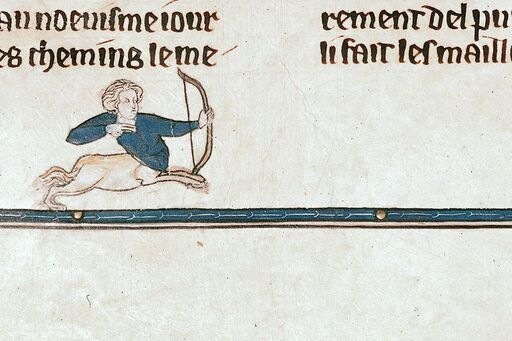 au ndeuisme iour
es chemins le me
rement del pu
li fait les maill